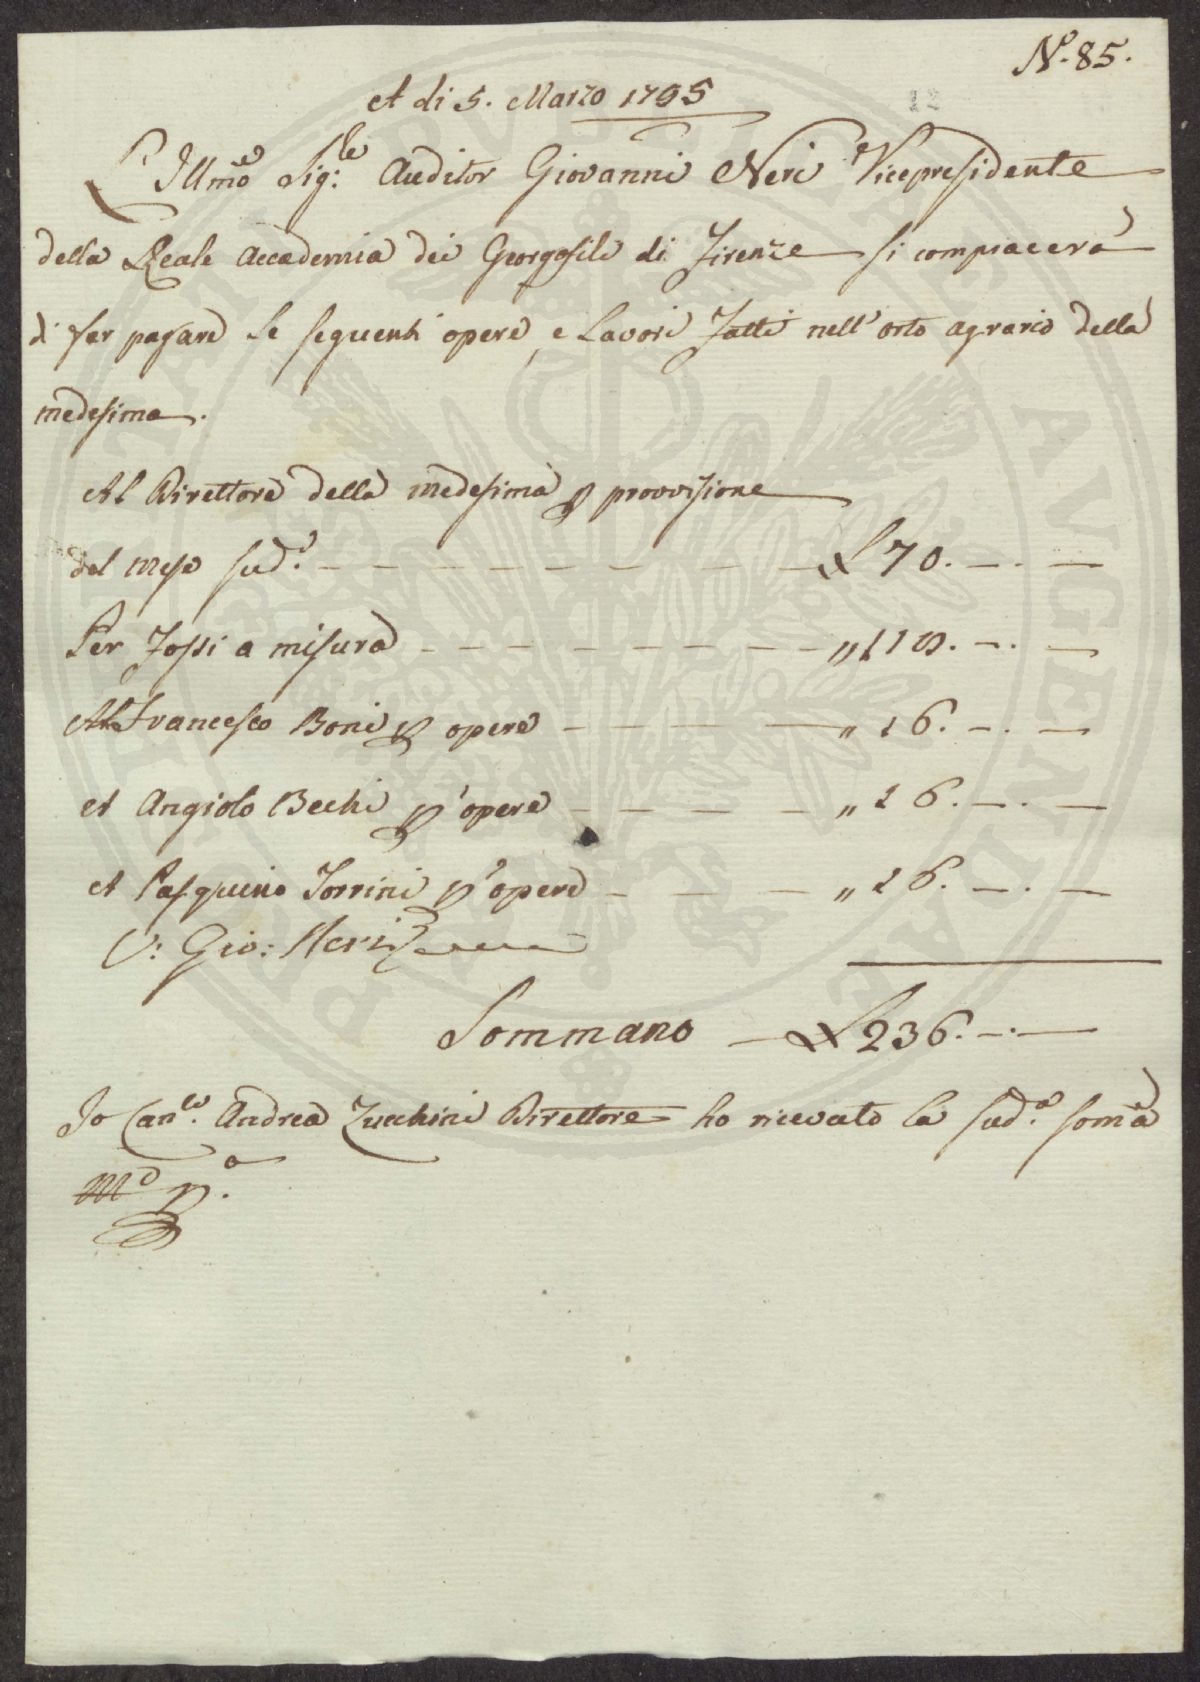 N.º 85.
12
A di 5. Marzo 1795
L'Illmo Sig.le Auditor Giovanni Neri Vicepresidente
della Reale Accademia dei Georgofili di Firenze si compiacerà
di far pagare le seguenti opere, e Lavori fatti nell'orto agrario della
medesima.
Al Direttore della medesima p provvisione
del mese sud.º - - - - - - - £ 70. -. -
Per fossi a misura - - - - - - - „ 118. -. -
A Francesco Boni p opere - - - - „ 16. -. -
A Angiolo Bechi p opere - - - - „ 16. -. -
A Pasquino Torrini p opere - - - - „ 16. -. -
V: Gio: Neri
Sommano - £ 236. -. -
Io Can.co Andrea Zucchini Direttore ho ricevuto la sud.a somma
M.º p.a
PROSPERITATI PVBLICAE AVGENDAE